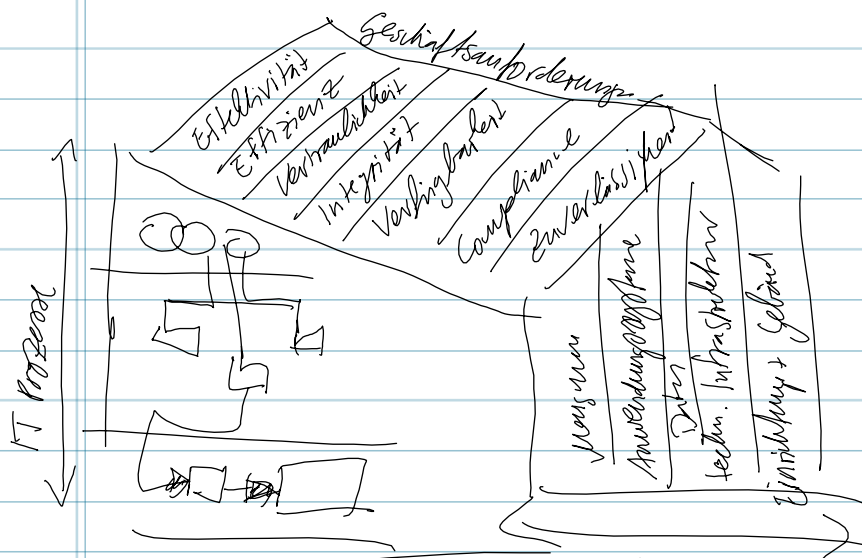 Geschäftsanforderungen
Effektivität
Effizienz
Vertraulichkeit
Integrität
Verfügbarkeit
Compliance
Zuverlässigkeit
IT Prozesse
Menschen
Anwendungssysteme
Daten
techn. Infrastruktur
Einrichtung + Gebäud